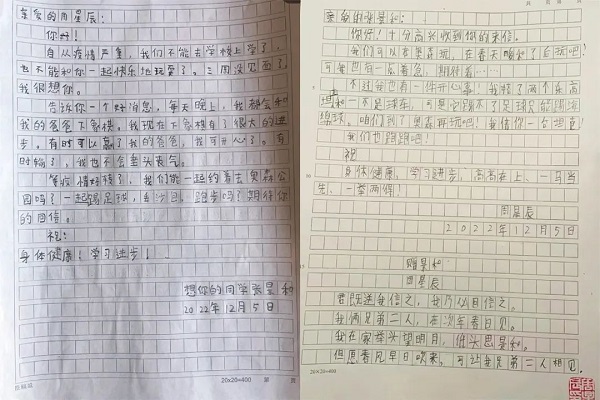 亲爱的周星辰：
你好！
自从疫情严重，我们不能去学校上学了，
也不能和你一起快乐地玩耍了。三周没见面了
我很想你。
告诉你一个好消息，每天晚上，我都会和
我的爸爸下象棋。我现在下象棋有了很大的进
步，有时可以赢了我的爸爸，我可开心了。有
时输了，我也不会垂头丧气。
等疫情好转了，我们能一起约着去奥森公
园吗？一起踢足球，跑步吗？期待你
的回信。
祝：
身体健康！学习进步！
想你的同学张昱和
2022年12月5日
20×20=400
亲爱的张昱和：
你好！十分高兴收到你的来信。
我们可以在奥森玩，在春天暖和了去玩吧！
可每也有一点着急，期待着……
不过我也有一件开心事！我搭了两个乐高
坦和一个足球车，可是它踢不了足球只能踢
绵球。咱们到了奥森再玩吧！我借你一台坦克！
我们也跑跑吧！
祝
身体健康，学习进步，高高在上、一马当
先、一举两得！
周星辰
2022年12月5日
赠昱和
周星辰
君既送我信之，我乃必回信之。
我俩足第二人，在次车春日见。
我在家举头望明月，低头思昱和。
但愿春风早日吹来，可让我足第二人相见。
20×20=400